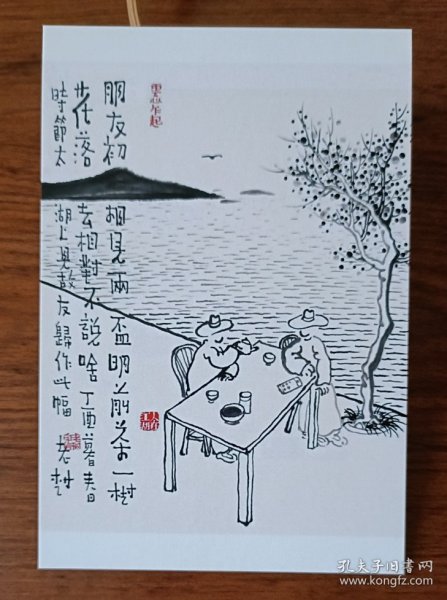 朋友初相見兩盃明前茶一樹
花落去相對不說啥丁酉暮春
時節太湖上見故友歸作此幅 老樹
人在江湖
孔夫子旧书网
www.kongfz.com